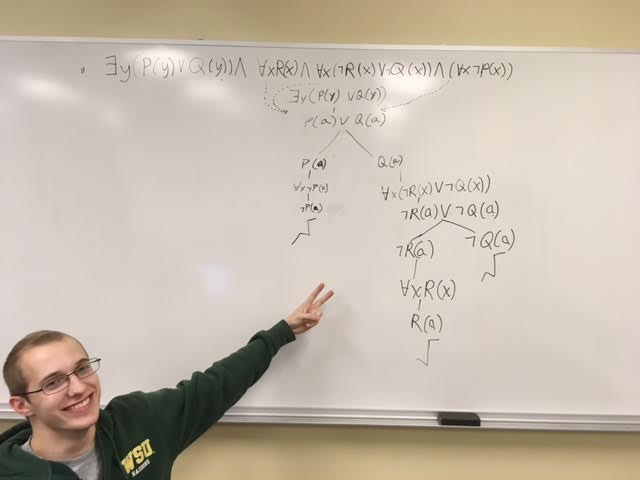 ∃y(P(y)∨Q(y))∧ ∀xR(x)∧ ∀x(¬R(x)∨¬Q(x))∧(∀x¬P(x))
∃y(P(y)∨Q(y))
P(a)∨Q(a)
P(a) Q(a)
∀x¬P(x) ∀x(¬R(x)∨¬Q(x))
¬P(a) ¬R(a)∨¬Q(a)
¬R(a) ¬Q(a)
∀xR(x)
R(a)
WSU